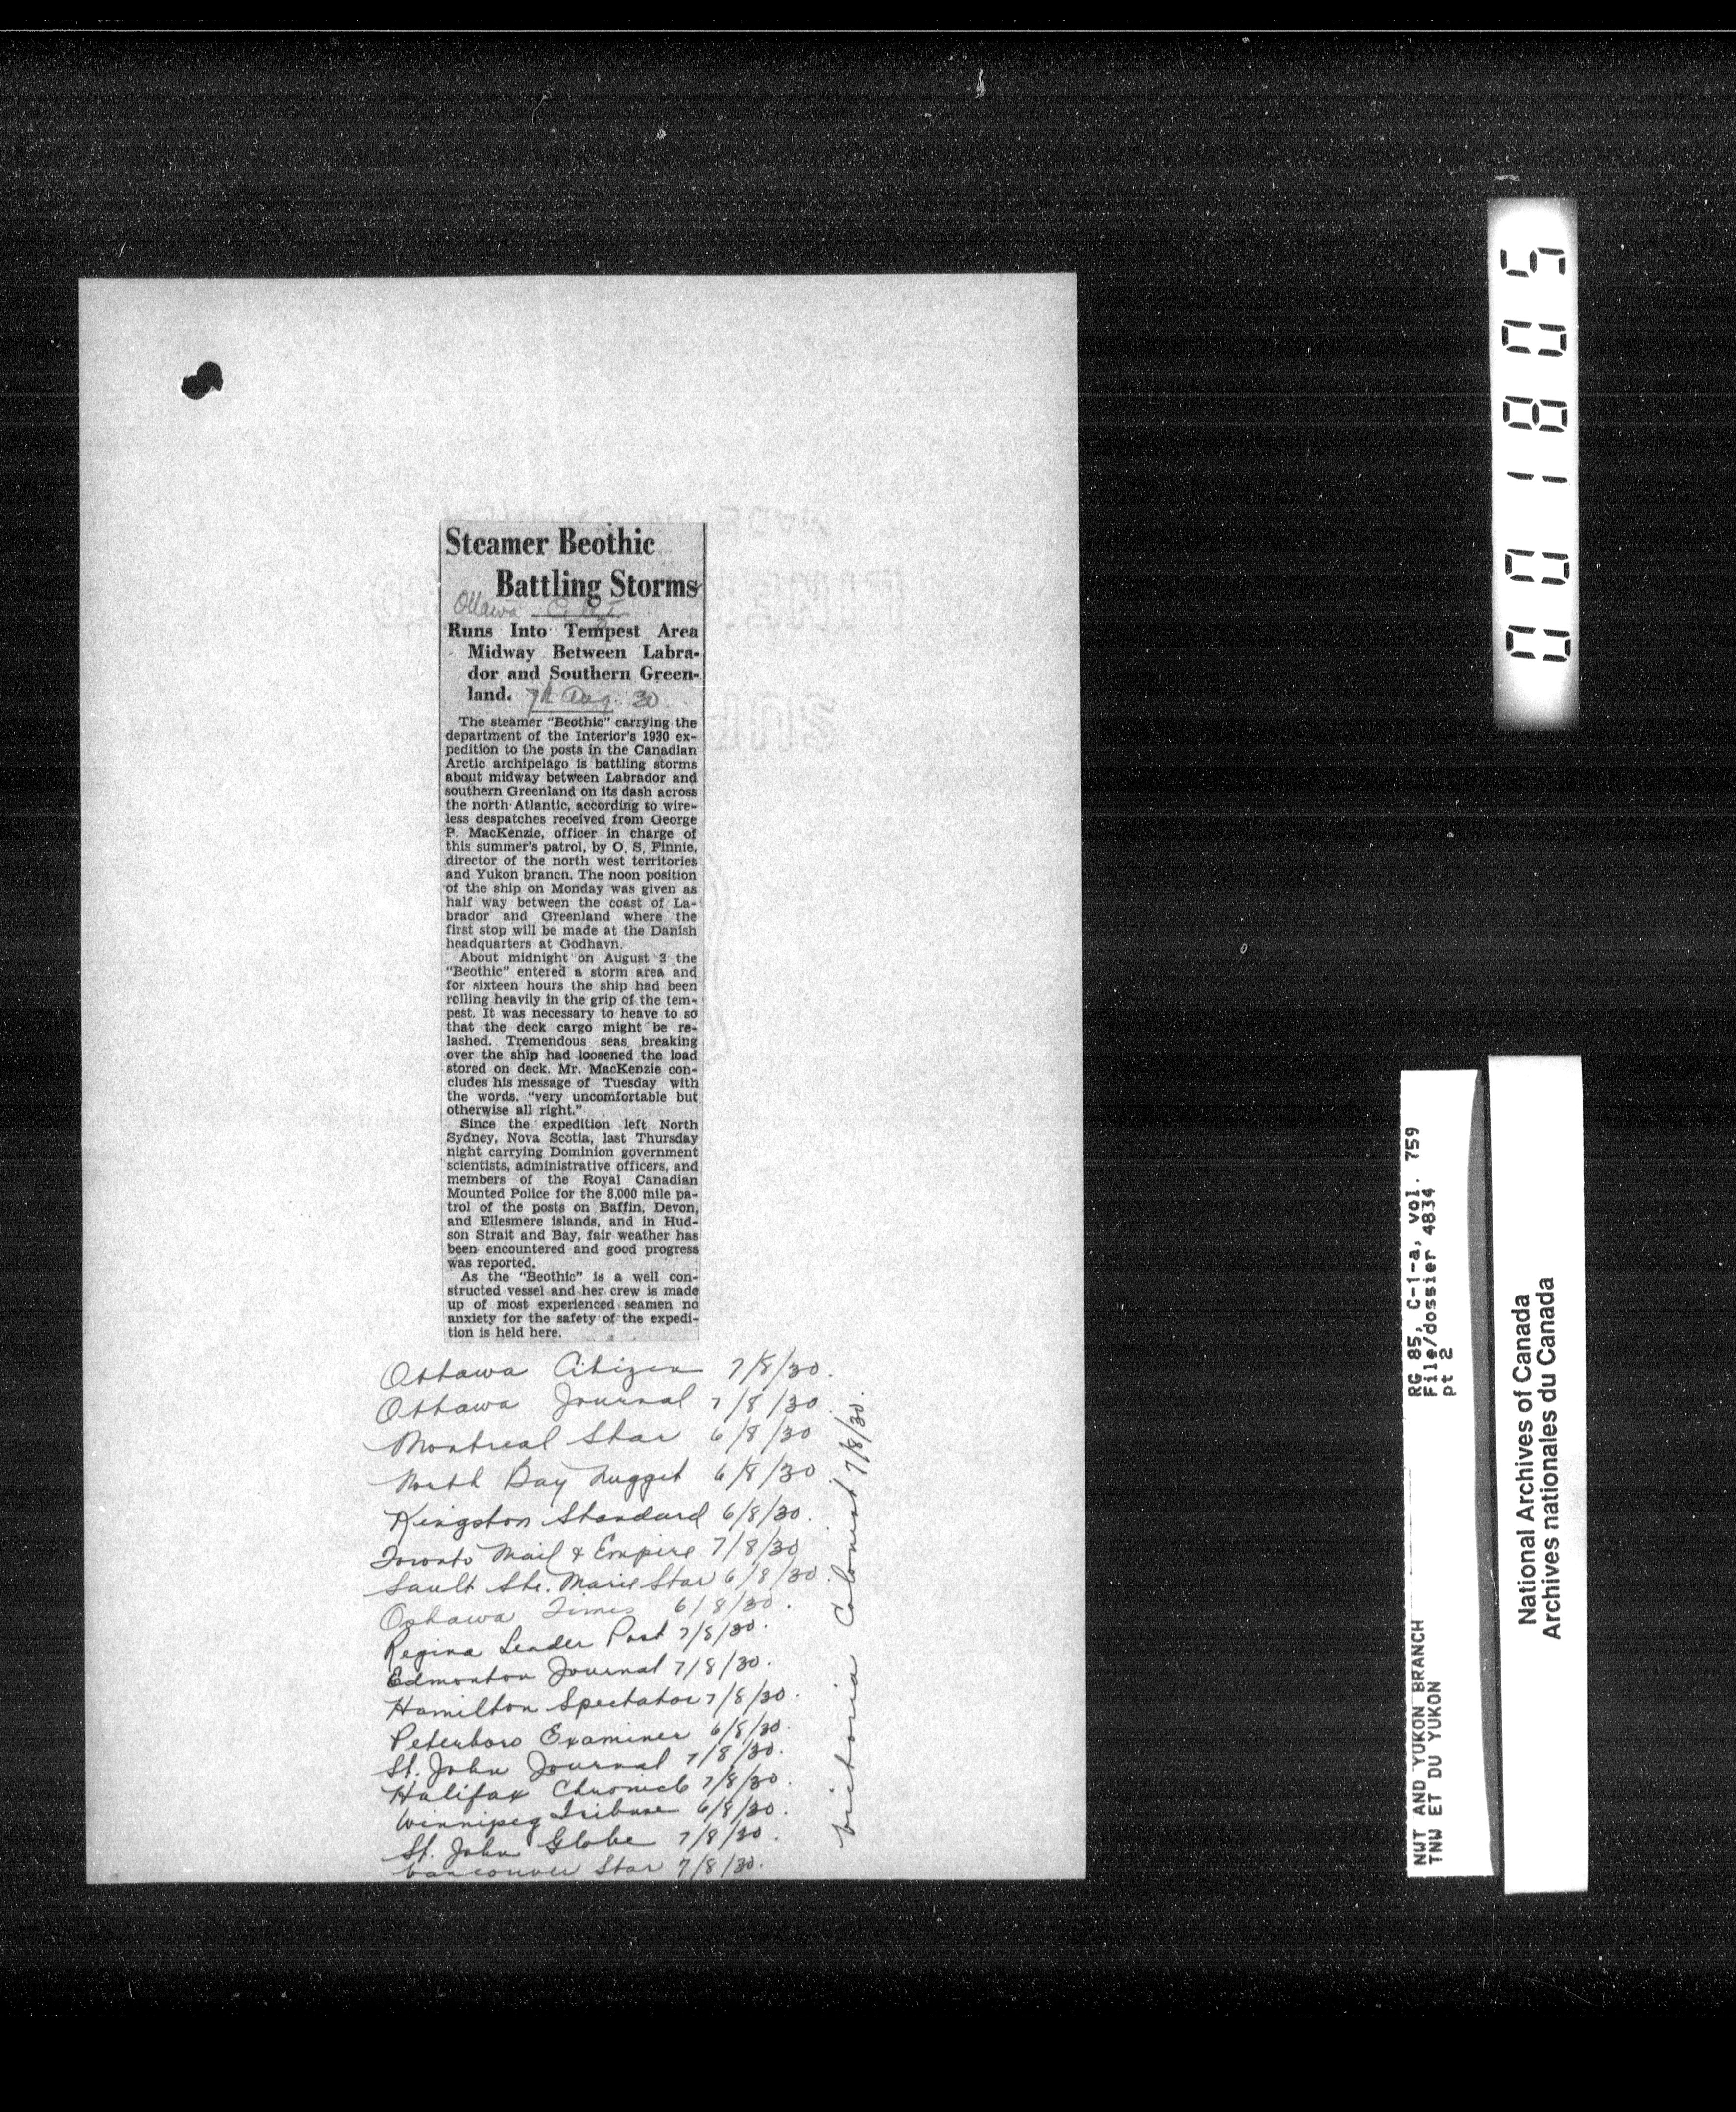 Steamer Beothic
Battling Storms
Ottawa
Runs Into Tempest Area
Midway Between Labra-
dor and Southern Green-
land. 7th Aug. 30
The steamer "Beothic" carrying the
department of the Interior's 1930 ex-
pedition to the posts in the Canadian
Arctic archipelago is battling storms
about midway between Labrador and
southern Greenland on its dash across
the north Atlantic, according to wire-
less despatches received from George
P. MacKenzie, officer in charge of
this summer's patrol, by O. S. Finnie,
director of the north west territories
and Yukon branch. The noon position
of the ship on Monday was given as
half way between the coast of La-
brador and Greenland where the
first stop will be made at the Danish
headquarters at Godhavn.
About midnight on August 3 the
"Beothic" entered a storm area and
for sixteen hours the ship had been
rolling heavily in the grip of the tem-
pest. It was necessary to heave to so
that the deck cargo might be re-
lashed. Tremendous seas breaking
over the ship had loosened the load
stored on deck. Mr. MacKenzie con-
cludes his message of Tuesday with
the words, "very uncomfortable but
otherwise all right."
Since the expedition left North
Sydney, Nova Scotia, last Thursday
night carrying Dominion government
scientists, administrative officers, and
members of the Royal Canadian
Mounted Police for the 8,000 mile pa-
trol of the posts on Baffin, Devon,
and Ellesmere islands, and in Hud-
son Strait and Bay, fair weather has
been encountered and good progress
was reported.
As the "Beothic" is a well con-
structed vessel and her crew is made
up of most experienced seamen no
anxiety for the safety of the expedi-
tion is held here.
Ottawa Citizen 7/8/30.
Ottawa Journal 7/8/30.
Montreal Star 6/8/30
North Bay Nugget 6/8/30
Kingston Standard 6/8/30.
Toronto Mail & Empire 7/8/30
Sault Ste. Marie Star 6/8/30.
Oshawa Times 6/8/30.
Regina Leader Post 7/8/30.
Edmonton Journal 7/8/30.
Hamilton Spectator 7/8/30.
Peterboro Examiner 6/8/30.
St. John Journal 7/8/30.
Halifax Chronicle 7/8/30.
Winnipeg Tribune 6/8/30.
St. John Globe 7/8/30.
Vancouver Star 7/8/30.
Victoria Colonist 7/8/30.
001805
RG 85, C-1-a, vol. 759
File/dossier 4834
pt 2
NWT AND YUKON BRANCH
TNW ET DU YUKON
National Archives of Canada
Archives nationales du Canada